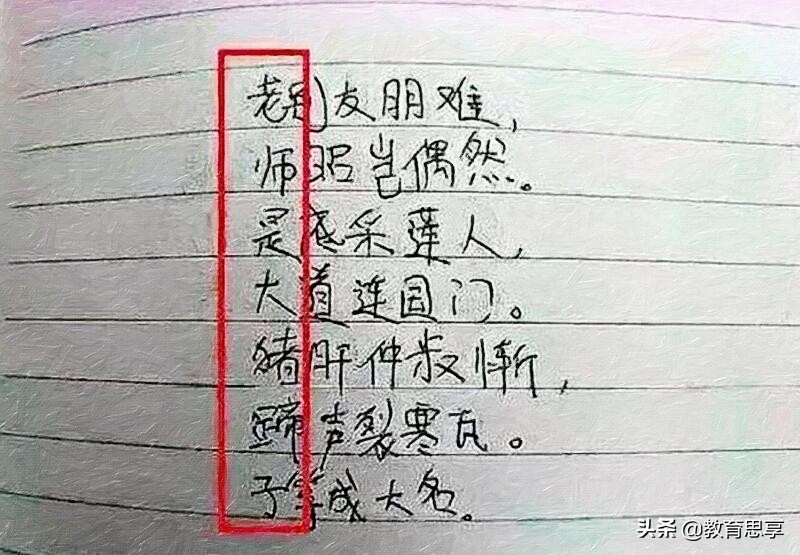 老别友朋难，
师昭岂偶然。
是底采莲人，
大道连国门。
猪肝仲叔惭，
蹄声裂寒瓦。
子等成大名。
头条 @教育思享